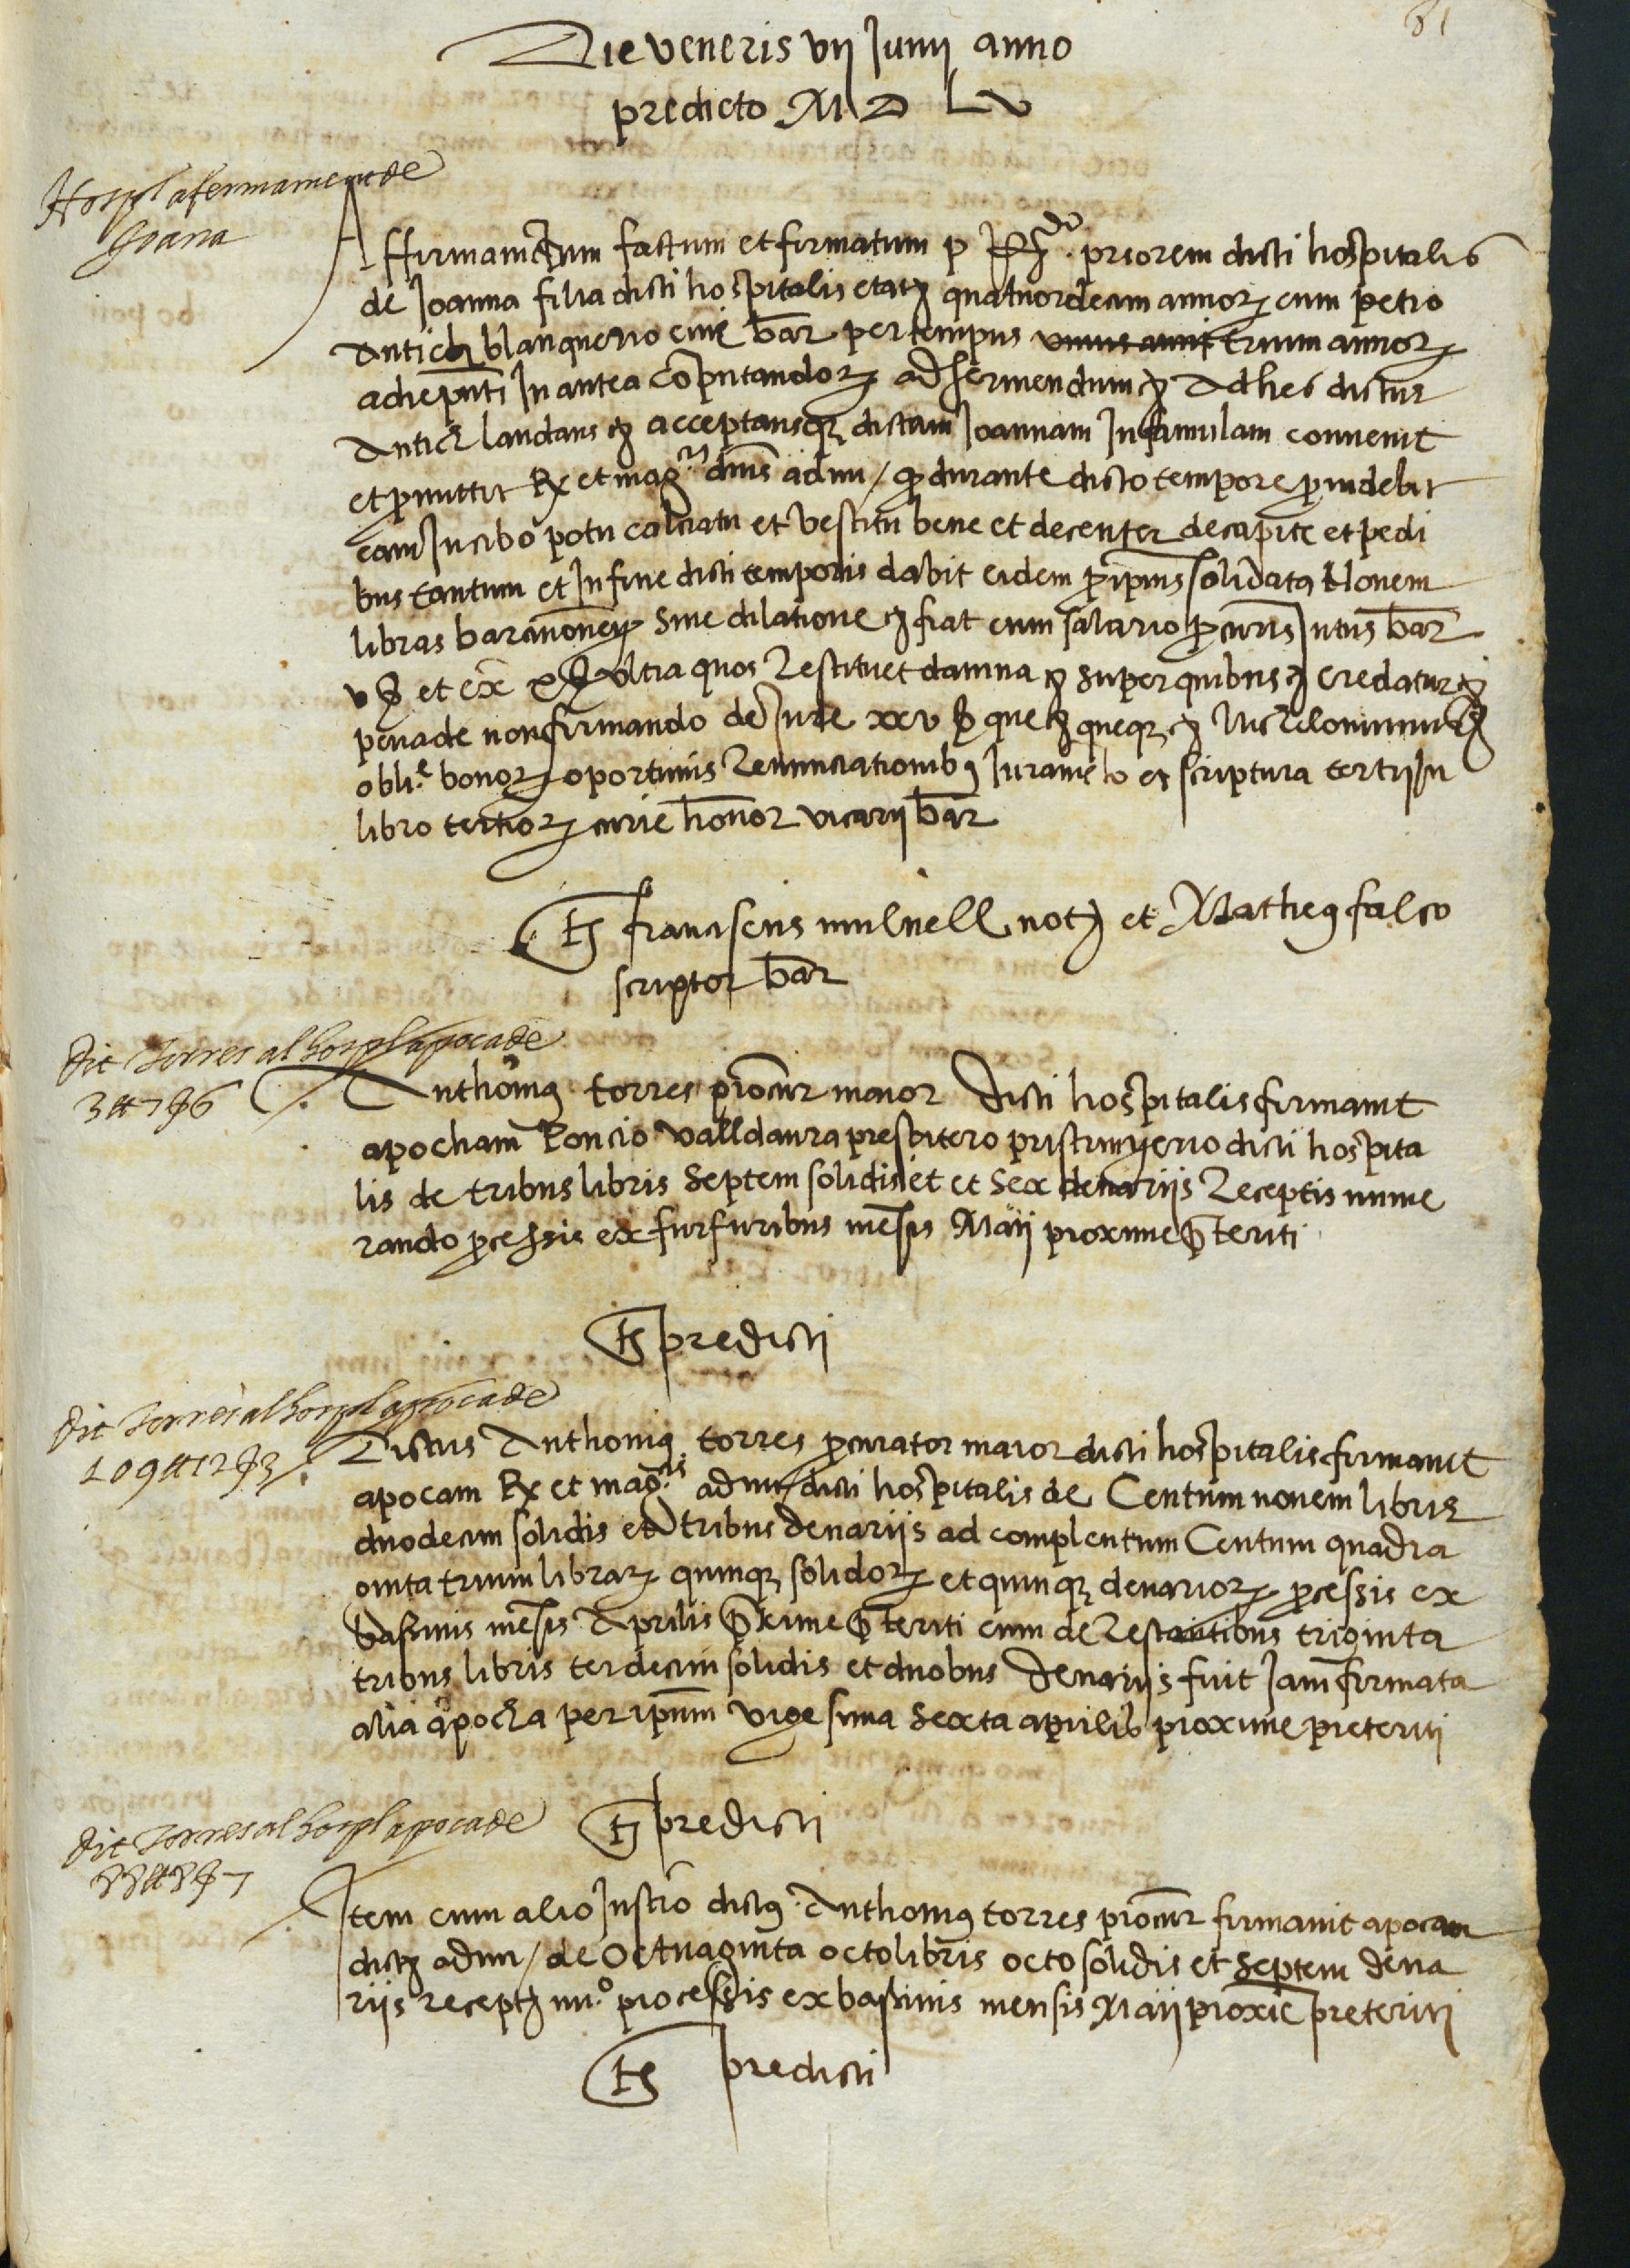 81
Die veneris vij Junij anno
predicto M D Lv
Hospl afermament de
Joana
Affirmamentum factum et firmatum p Rdũ. priorem dicti hospitalis
de Joanna filia dicti hospitalis etatis quatuordecim annorꝝ cum petro
Antich blanquerio cive bar̃ per tempus unius anni trium annorꝝ
ad hepñti In antea cõputandorꝝ ad serviendum etc̃ Ad hec dictus
Antich laudans etc̃ acceptansqꝫ dictam Joannam In famulam convenit
et promittit Rx et magcis dñis admi/ ꝙ durante dicto tempore providebit
eam In cibo potu calciatu et vestitu bene et decenter de capite et pedi
bus tantum et In fine dicti temporis dabit eidem pro ipius solidata Novem
libras barcinoneñ sine dilatione etc̃ fiat cum salario procuris Intus bar̃
v ß et ex̃ x ß Ultra quos Restituet damna etc̃ super quibus etc̃ credatur etc̃
pena de non firmando de Jure xxv ß que etc̃ queqꝫ etc̃
oblie bonorꝝ oportunis Renunciationibꝫ Juramẽto et scriptura tertij In
libro tertiorꝝ curie hõnor vicarij bar̃
ts̃ franciscus mulnell notꝰ et Matheꝰ falco
scriptor bar̃
Dit Torres al hospl apoca de
3 ₶ 7 ß 6
Anthoniꝰ torres procur̃ maior dicti hospitalis firmavit
apocham Poncio valldaura presbitero pristinyerio dicti hospita
lis de tribus libris septem solidis et et sex denariis Receptis nume
rando processis ex furfuribus mẽsis Maij proxime p̃teriti
ts̃ predicti
Dit Torres al hospl apoca de
109 ₶ 12 ß 3
Dictus Anthoniꝰ torres procurator maior dicti hospitalis firmavit
apocam Rx et magcis admi/ dicti hospitalis de Centum novem libris
duodecim solidis et tribus denariis ad complentum Centum quadra
ginta trium librarꝝ quinqꝫ solidorꝝ et quinqꝫ denariorꝝ processis ex
bassinis mẽsis Aprilis p̃xime p̃teriti cum de Restantibus triginta
tribus libris terdecim solidis et duobus denarijs fuit Jam firmata
alia apocha per ipm̃ vigesima sexta aprilis proxime preteriti
ts̃ predicti
Dit Torres al hospl apoca de
88 ₶ 8 ß 7
Item cum alio Instrõ dictꝰ Anthoniꝰ torres procur̃ firmavit apocam
dictis admi/ de Octuaginta octo libris octo solidis et septem dena
riis receptis nuo processis ex bassinis mensis Maij proxĩe preteriti
ts̃ predicti